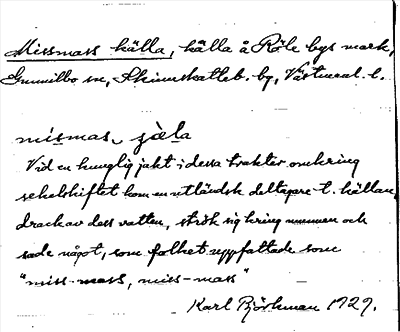 Missmass källa, källa å Röle bys mark,
Gunnilbo sn, Skinnskatteb. bg, Västmanl. l.
mismas, ɟäla
Vid en kunglig jakt i dessa trakter omkring
sekelskiftet kom en utländsk deltagare t. källan,
drack av dess vatten, strök sig kring munnen och
sade något, som folket uppfattade som
"miss-mass, miss-mass"
Karl Björkman 1929.